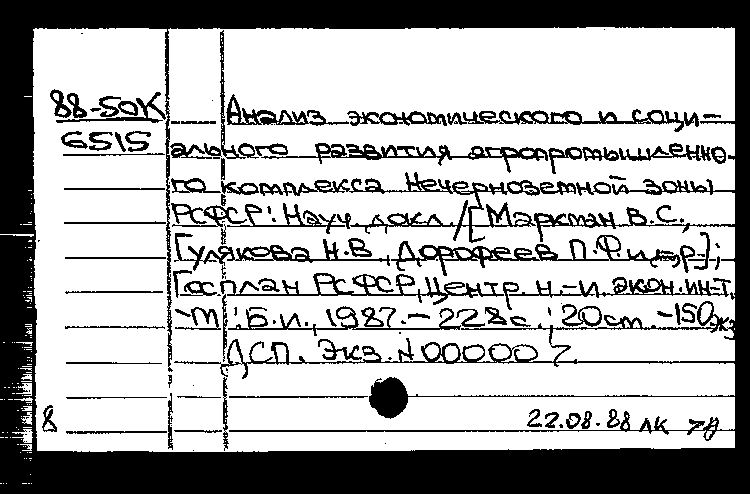 88-50К
6515
Анализ экономического и соци-
ального развития агропромышленно-
го комплекса Нечерноземной зоны
РСФСР: Науч. докл. / [Маркман В.С.,
Гулякова Н.В., Дорофеев П.Ф. и др.];
Госплан РСФСР, Центр. н.-и. экон. ин-т.
-М.: Б.и., 1987. - 228с.; 20см. -150экз
ДСП. Экз. N 000007.
8
22.08.88 ЛК